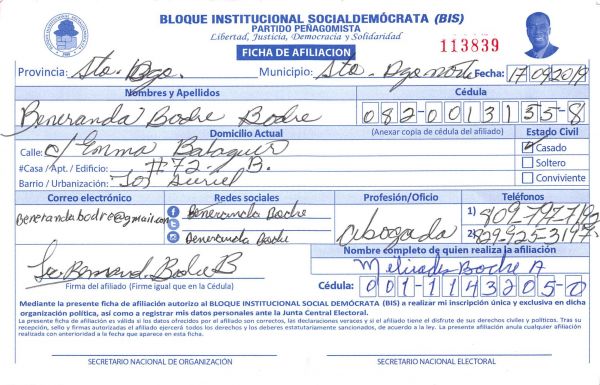 BLOQUE INSTITUCIONAL SOCIALDEMÓCRATA (BIS)
PARTIDO PEÑAGOMISTA
Libertad, Justicia, Democracia y Solidaridad
FICHA DE AFILIACION
113839
Provincia: Sto. Dgo. Municipio: Sto. Dgo norte Fecha: 17/09/2019
Nombres y Apellidos Cédula
Beneranda Bodre Bodre 082-0013155-8
Domicilio Actual (Anexar copia de cédula del afiliado) Estado Civil
Calle: c/ Emma Balaguer Casado
#Casa / Apt. / Edificio: #72-B. Soltero
Barrio / Urbanización: Conviviente
Correo electrónico Redes sociales Profesión/Oficio Teléfonos
benerandabodre@gmail.com Beneranda Bodre Abogada 1) 809-797-7192
Beneranda Bodre 2) 829-925-3197
Nombre completo de quien realiza la afiliación
Bodre A
Firma del afiliado (Firme igual que en la Cédula) Cédula: 001-1143205-0
Mediante la presente ficha de afiliación autorizo al BLOQUE INSTITUCIONAL SOCIAL DEMÓCRATA (BIS) a realizar mi inscripción única y exclusiva en dicha
organización política, así como a registrar mis datos personales ante la Junta Central Electoral.
La presente ficha de afiliación es válida si los datos ofrecidos por el afiliado son correctos, las declaraciones veraces y si el afiliado tiene el disfrute de sus derechos civiles y políticos. Tras su
recepción, sello y firmas autorizadas el afiliado ejercerá todos los derechos y los deberes estatutariamente sancionados, de acuerdo a la ley. La presente afiliación anula cualquier afiliación
realizada con anterioridad a la fecha que aparece en esta ficha.
SECRETARIO NACIONAL DE ORGANIZACIÓN SECRETARIO NACIONAL ELECTORAL